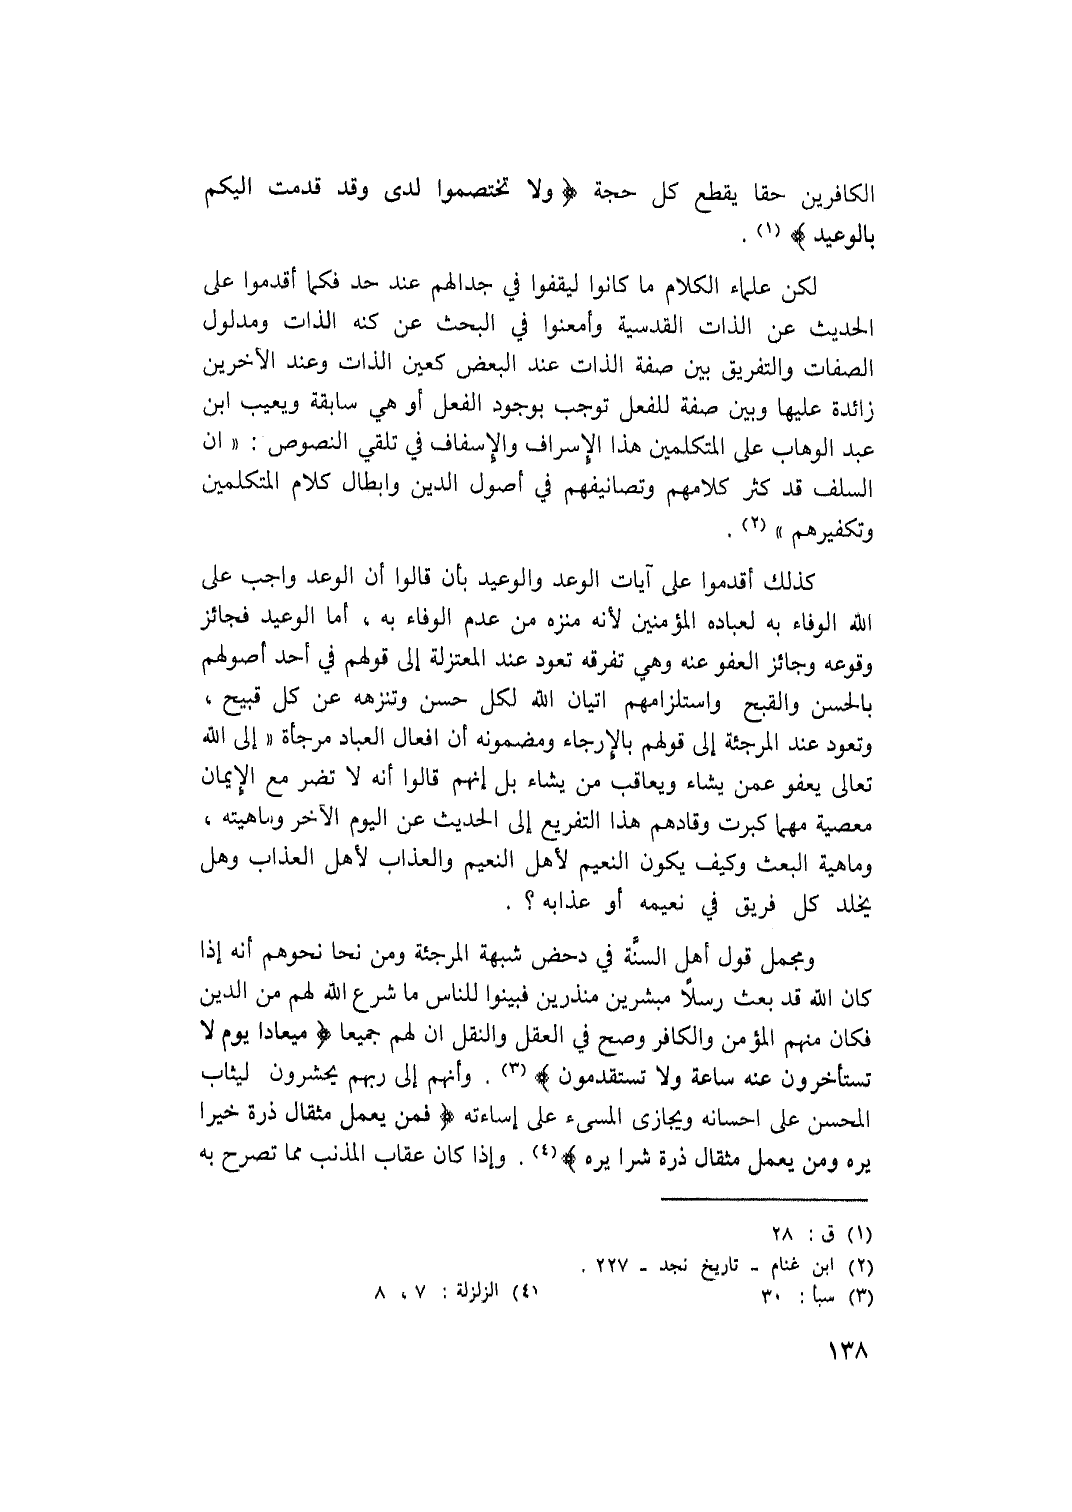 الكافرين حقا يقطع كل حجة ﴿ ولا تختصموا لدى وقد قدمت اليكم
بالوعيد ﴾ (١) .
لكن علماء الكلام ما كانوا ليقفوا في جدالهم عند حد فكما أقدموا على
الحديث عن الذات القدسية وأمعنوا في البحث عن كنه الذات ومدلول
الصفات والتفريق بين صفة الذات عند البعض كعين الذات وعند الآخرين
زائدة عليها وبين صفة للفعل توجب بوجود الفعل أو هي سابقة ويعيب ابن
عبد الوهاب على المتكلمين هذا الإسراف والإسفاف في تلقي النصوص : « ان
السلف قد كثر كلامهم وتصانيفهم في أصول الدين وابطال كلام المتكلمين
وتكفيرهم » (٢) .
كذلك أقدموا على آيات الوعد والوعيد بأن قالوا أن الوعد واجب على
الله الوفاء به لعباده المؤمنين لأنه منزه من عدم الوفاء به ، أما الوعيد فجائز
وقوعه وجائز العفو عنه وهي تفرقه تعود عند المعتزلة إلى قولهم في أحد أصولهم
بالحسن والقبح واستلزامهم اتيان الله لكل حسن وتنزهه عن كل قبيح ،
وتعود عند المرجئة إلى قولهم بالإرجاء ومضمونه أن افعال العباد مرجأة « إلى الله
تعالى يعفو عمن يشاء ويعاقب من يشاء بل إنهم قالوا أنه لا تضر مع الإيمان
معصية مهما كبرت وقادهم هذا التفريع إلى الحديث عن اليوم الآخر وماهيته ،
وماهية البعث وكيف يكون النعيم لأهل النعيم والعذاب لأهل العذاب وهل
يخلد كل فريق في نعيمه أو عذابه ؟ .
ومجمل قول أهل السنَّة في دحض شبهة المرجئة ومن نحا نحوهم أنه إذا
كان الله قد بعث رسلاً مبشرين منذرين فبينوا للناس ما شرع الله لهم من الدين
فكان منهم المؤمن والكافر وصح في العقل والنقل ان لهم جميعا ﴿ ميعادا يوم لا
تستأخرون عنه ساعة ولا تستقدمون ﴾ (٣) . وأنهم إلى ربهم يحشرون ليثاب
المحسن على احسانه ويجازى المسىء على إساءته ﴿ فمن يعمل مثقال ذرة خيرا
يره ومن يعمل مثقال ذرة شرا يره ﴾ (٤) . وإذا كان عقاب المذنب مما تصرح به
(١) ق : ٢٨
(٢) ابن غنام - تاريخ نجد - ٢٢٧ .
(٣) سبأ : ٣٠ (٤) الزلزلة : ٧ ، ٨
١٣٨